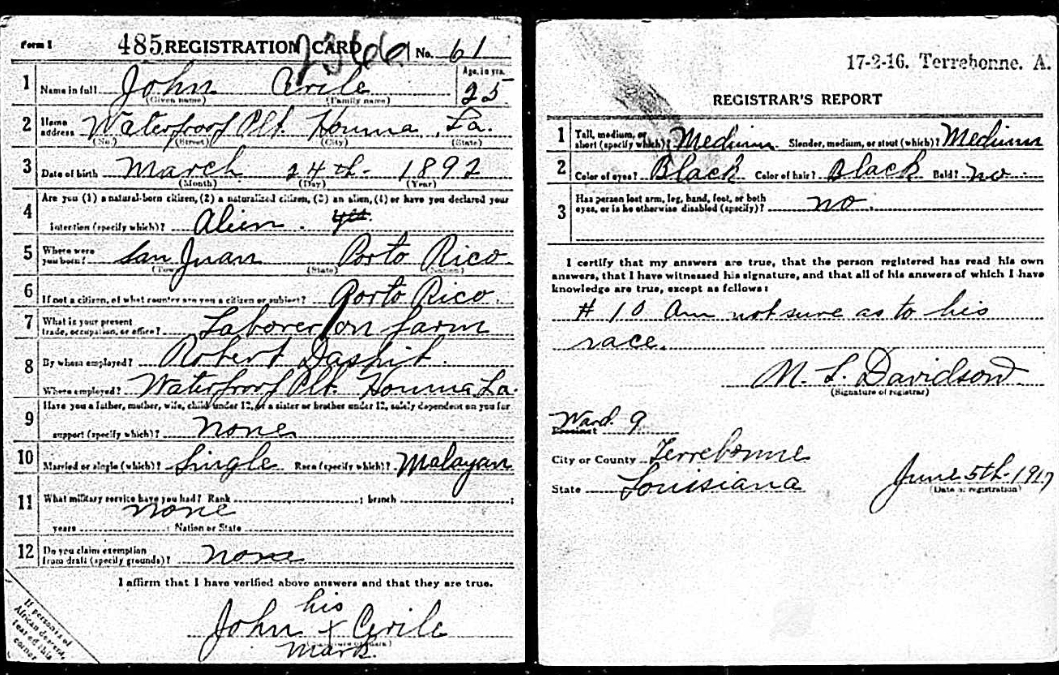 Form 1 485 REGISTRATION CARD No. 61
1 Name in full John Cirile Age, in yrs. 25
(Given name) (Family name)
2 Home address Waterproof Plt. Houma, La.
(No.) (Street) (City) (State)
3 Date of birth March 24th- 1892
(Month) (Day) (Year)
4 Are you (1) a natural-born citizen, (2) a naturalized citizen, (3) an alien, (4) or have you declared your
intention (specify which)? Alien.
5 Where were you born? San Juan Porto Rico
(Town) (State) (Nation)
6 If not a citizen, of what country are you a citizen or subject? Porto Rico.
7 What is your present trade, occupation, or office? Laborer on farm
8 By whom employed? Robert Daspit.
Where employed? Waterproof Plt. Houma La.
9 Have you a father, mother, wife, child under 12, or a sister or brother under 12, solely dependent on you for
support (specify which)? none
10 Married or single (which)? Single Race (specify which)? Malayan
11 What military service have you had? Rank ; branch ;
none
years Nation or State
12 Do you claim exemption from draft (specify grounds)? none
I affirm that I have verified above answers and that they are true.
his
John x Cirile
mark.
If person is of
African descent,
tear off this
corner
17-2-16. Terrebonne. A.
REGISTRAR'S REPORT
1 Tall, medium, or short (specify which)? Medium Slender, medium, or stout (which)? Medium
2 Color of eyes? Black Color of hair? Black Bald? no
3 Has person lost arm, leg, hand, foot, or both
eyes, or is he otherwise disabled (specify)? no.
I certify that my answers are true, that the person registered has read his own
answers, that I have witnessed his signature, and that all of his answers of which I have
knowledge are true, except as follows:
# 10 Am not sure as to his
race.
M. L. Davidson
(Signature of registrar)
Ward 9
Precinct
City or County Terrebonne
State Louisiana June 5th-1917
(Date of registration)